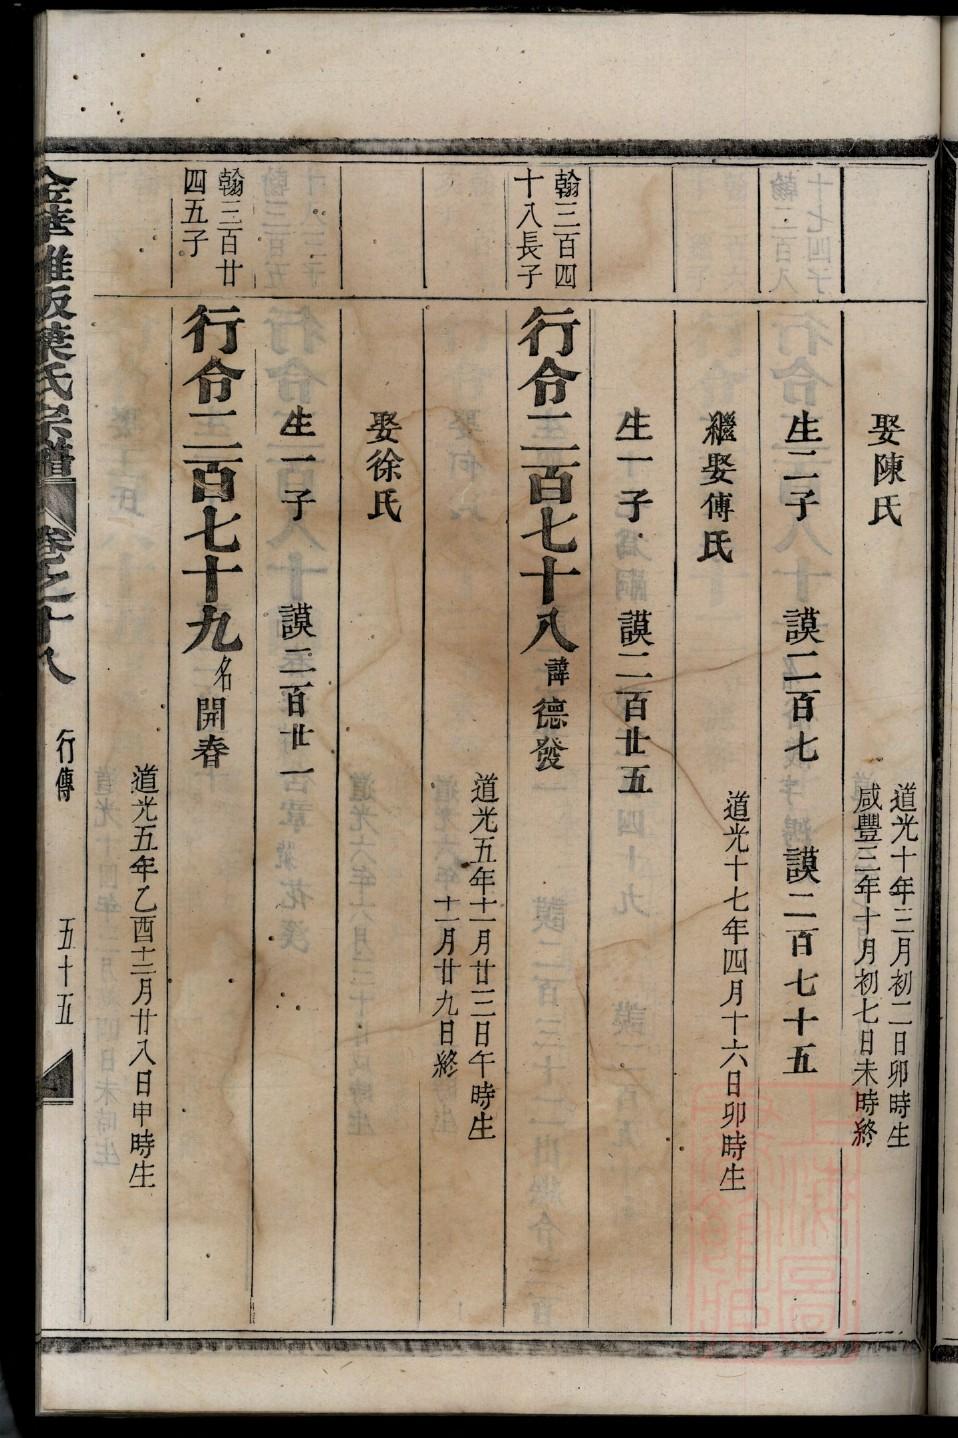 娶陳氏
道光十年三月初二日卯時生
咸豐三年十月初七日未時終
生二子 謨二百七 謨二百七十五
繼娶傅氏
道光十七年四月十六日卯時生
生一子 謨二百廿五
翰三百四
十八長子
行令二百七十八 諱德發
道光五年十一月廿三日午時生
十一月廿九日終
娶徐氏
生一子 謨二百廿一
翰三百廿
四五子
行令二百七十九 名開春
道光五年乙酉十二月廿八日申時生
葉氏宗譜 卷之十八 行傳 五十五